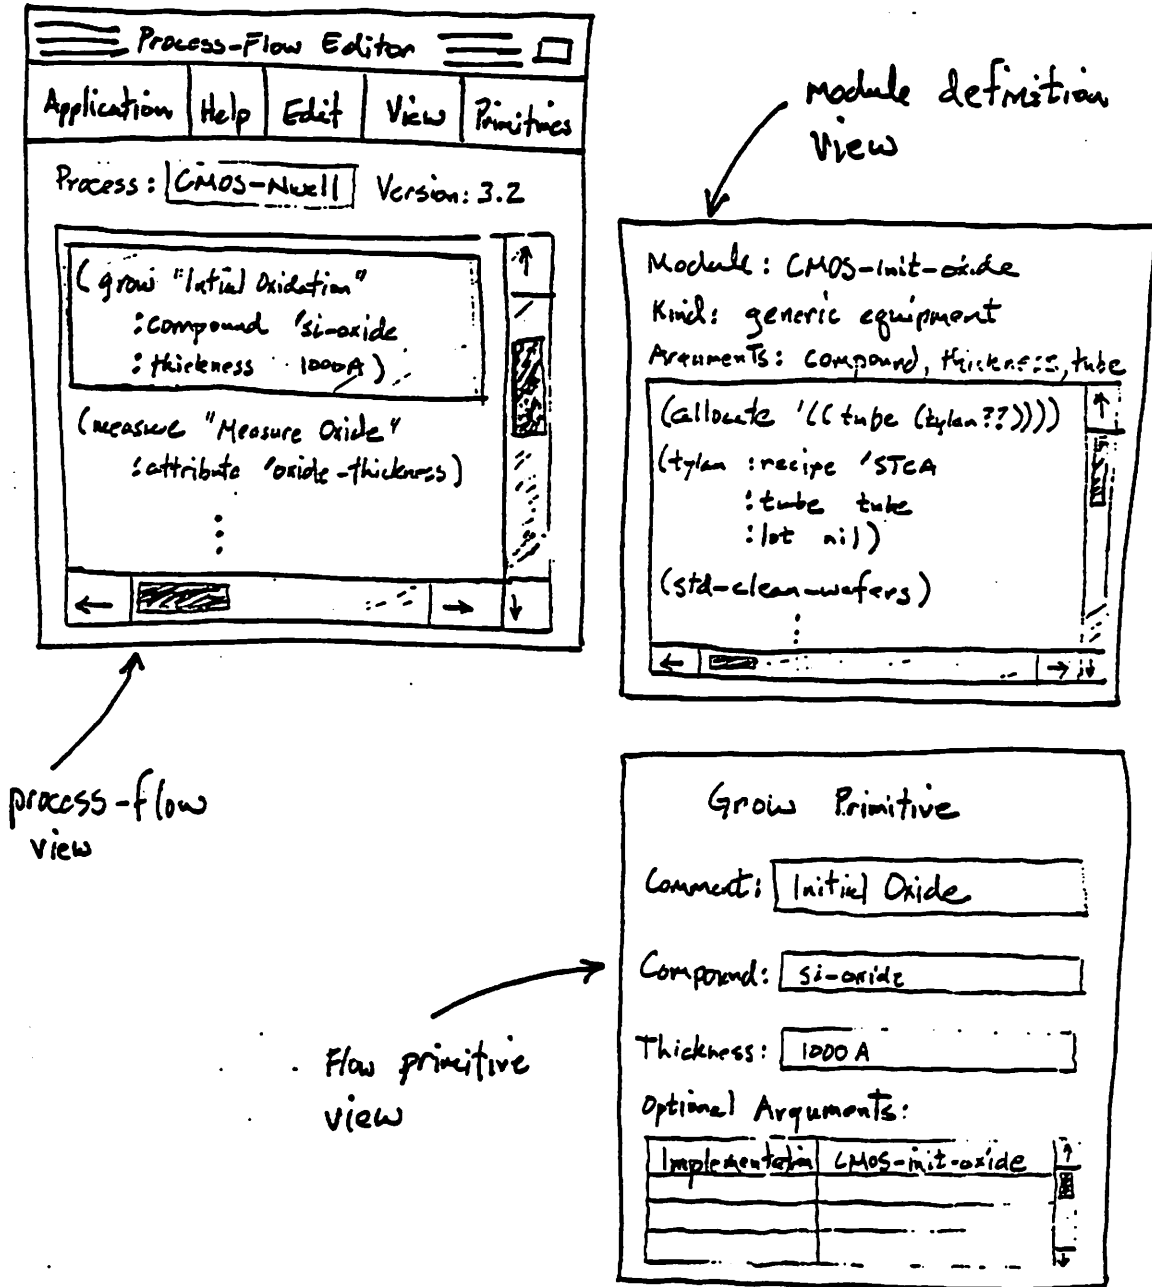 Process-Flow Editor
Application Help Edit View Primitives
Process: CMOS-Nwell Version: 3.2
(grow "Intial Oxidation"
:compound 'si-oxide
:thickness 1000A)
(measure "Measure Oxide"
:attribute 'oxide-thickness)
process-flow
view
module definition
view
Module: CMOS-init-oxide
Kind: generic equipment
Arguments: compound, thickness, tube
(allocate '((tube (tylan??))))
(tylan :recipe 'STCA
:tube tube
:lot nil)
(std-clean-wafers)
Flow primitive
view
Grow Primitive
Comment: Initial Oxide
Compound: si-oxide
Thickness: 1000A
Optional Arguments:
Implementation CMOS-init-oxide